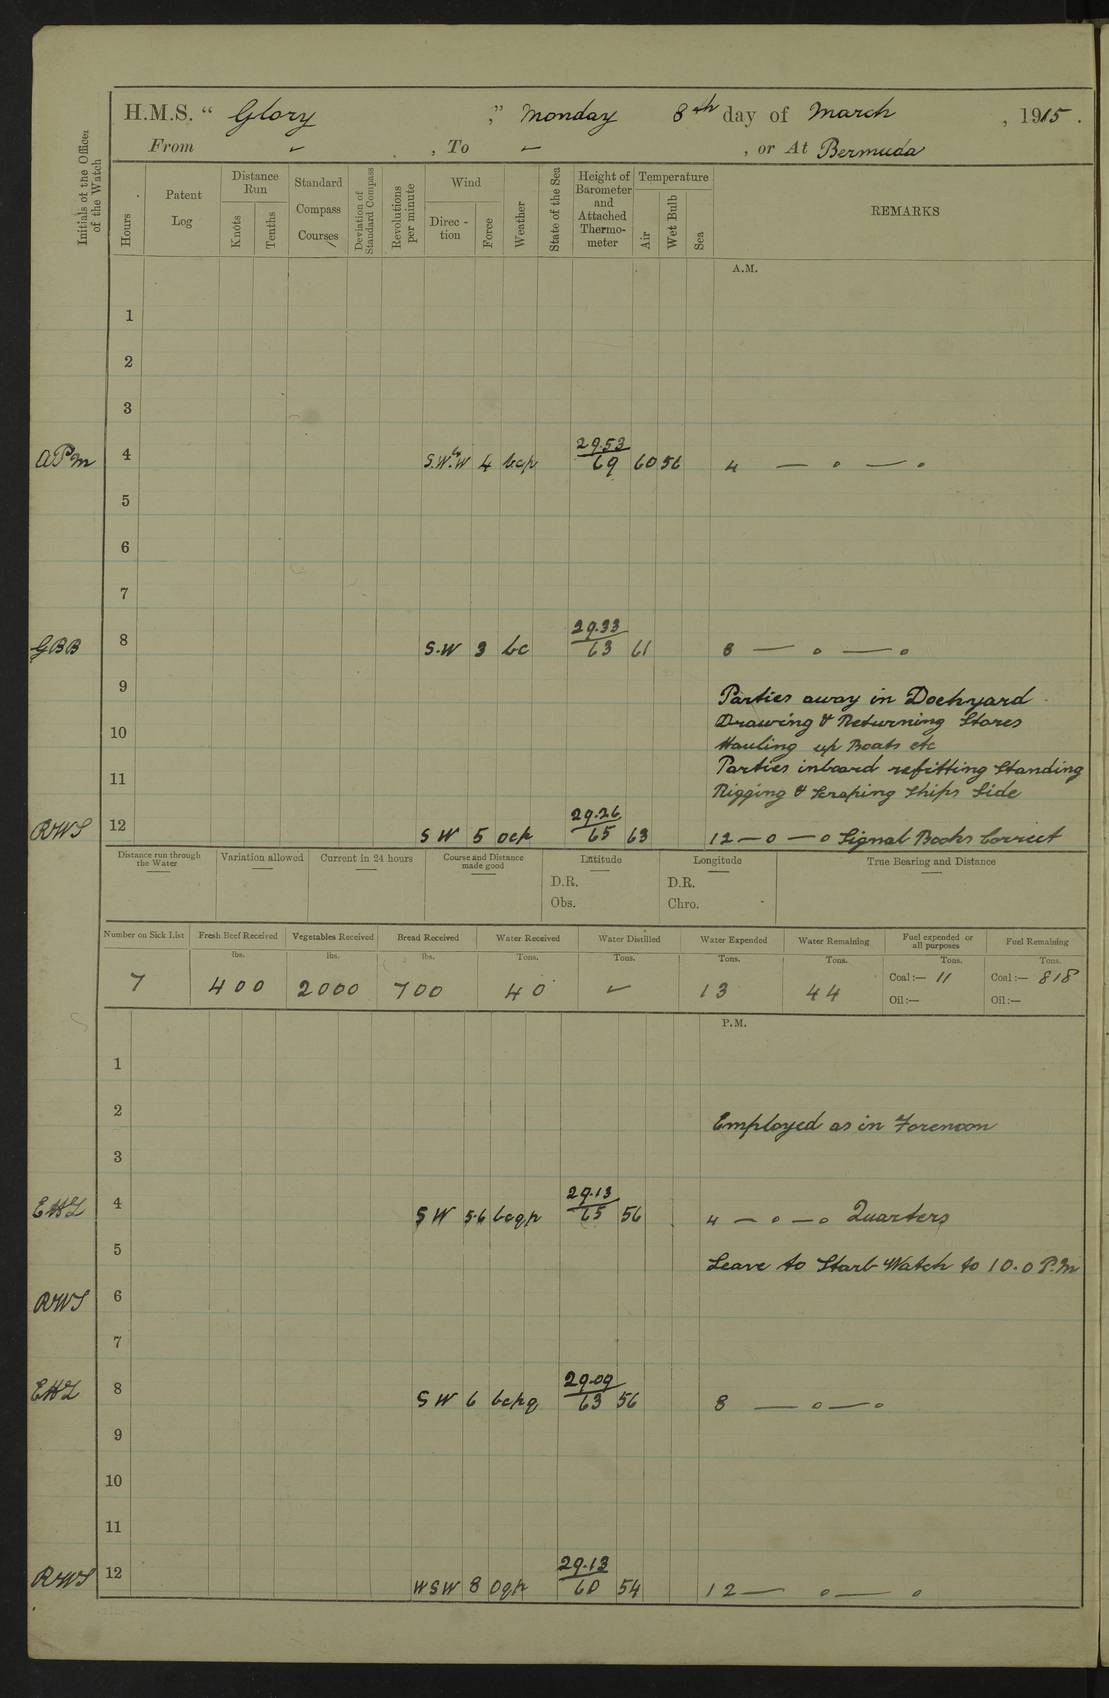 H.M.S. “ Glory ,” Monday 8th day of March , 1915 .
From - , To - , or At Bermuda
Initials of the Officer of the Watch
Hours
Patent Log
Distance Run
Knots
Tenths
Standard Compass Courses
Deviation of Standard Compass
Revolutions per minute
Wind
Direc-tion
Force
Weather
State of the Sea
Height of Barometer and Attached Thermo-meter
Temperature
Air
Wet Bulb
Sea
REMARKS
A.M.
1
2
3
APM 4 S.W.by W 4 bcp 29.53 69 60 56 4 — o — o
5
6
7
GBB 8 S.W 3 bc 29.33 63 61 8 — o — o
9 Parties away in Dockyard
Drawing & Returning Stores
10 Hauling up Boats etc
Parties inboard refitting Standing
11 Rigging & Scraping Ships Side
RWS 12 S W 5 ocp 29.26 65 63 12 — o — o Signal Books Correct
Distance run through the Water
Variation allowed
Current in 24 hours
Course and Distance made good
Latitude
D.R.
Obs.
Longitude
D.R.
Chro.
True Bearing and Distance
Number on Sick List Fresh Beef Received Vegetables Received Bread Received Water Received Water Distilled Water Expended Water Remaining Fuel expended or all purposes Fuel Remaining
lbs. lbs. lbs. Tons. Tons. Tons. Tons. Tons. Tons.
7 400 2000 700 40 - 13 44 Coal :— 11 Coal :— 818
Oil :— Oil :—
P.M.
1
2 Employed as in Forenoon
3
4 S W 5.6 bcqp 29.13 65 56 4 — o — o Quarters
5 Leave to Starb Watch to 10.0 P.M
RWS 6
7
8 S W 6 bcpq 29.09 63 56 8 — o — o
9
10
11
RWS 12 WSW 8 oqp 29.13 60 54 12 — o — o